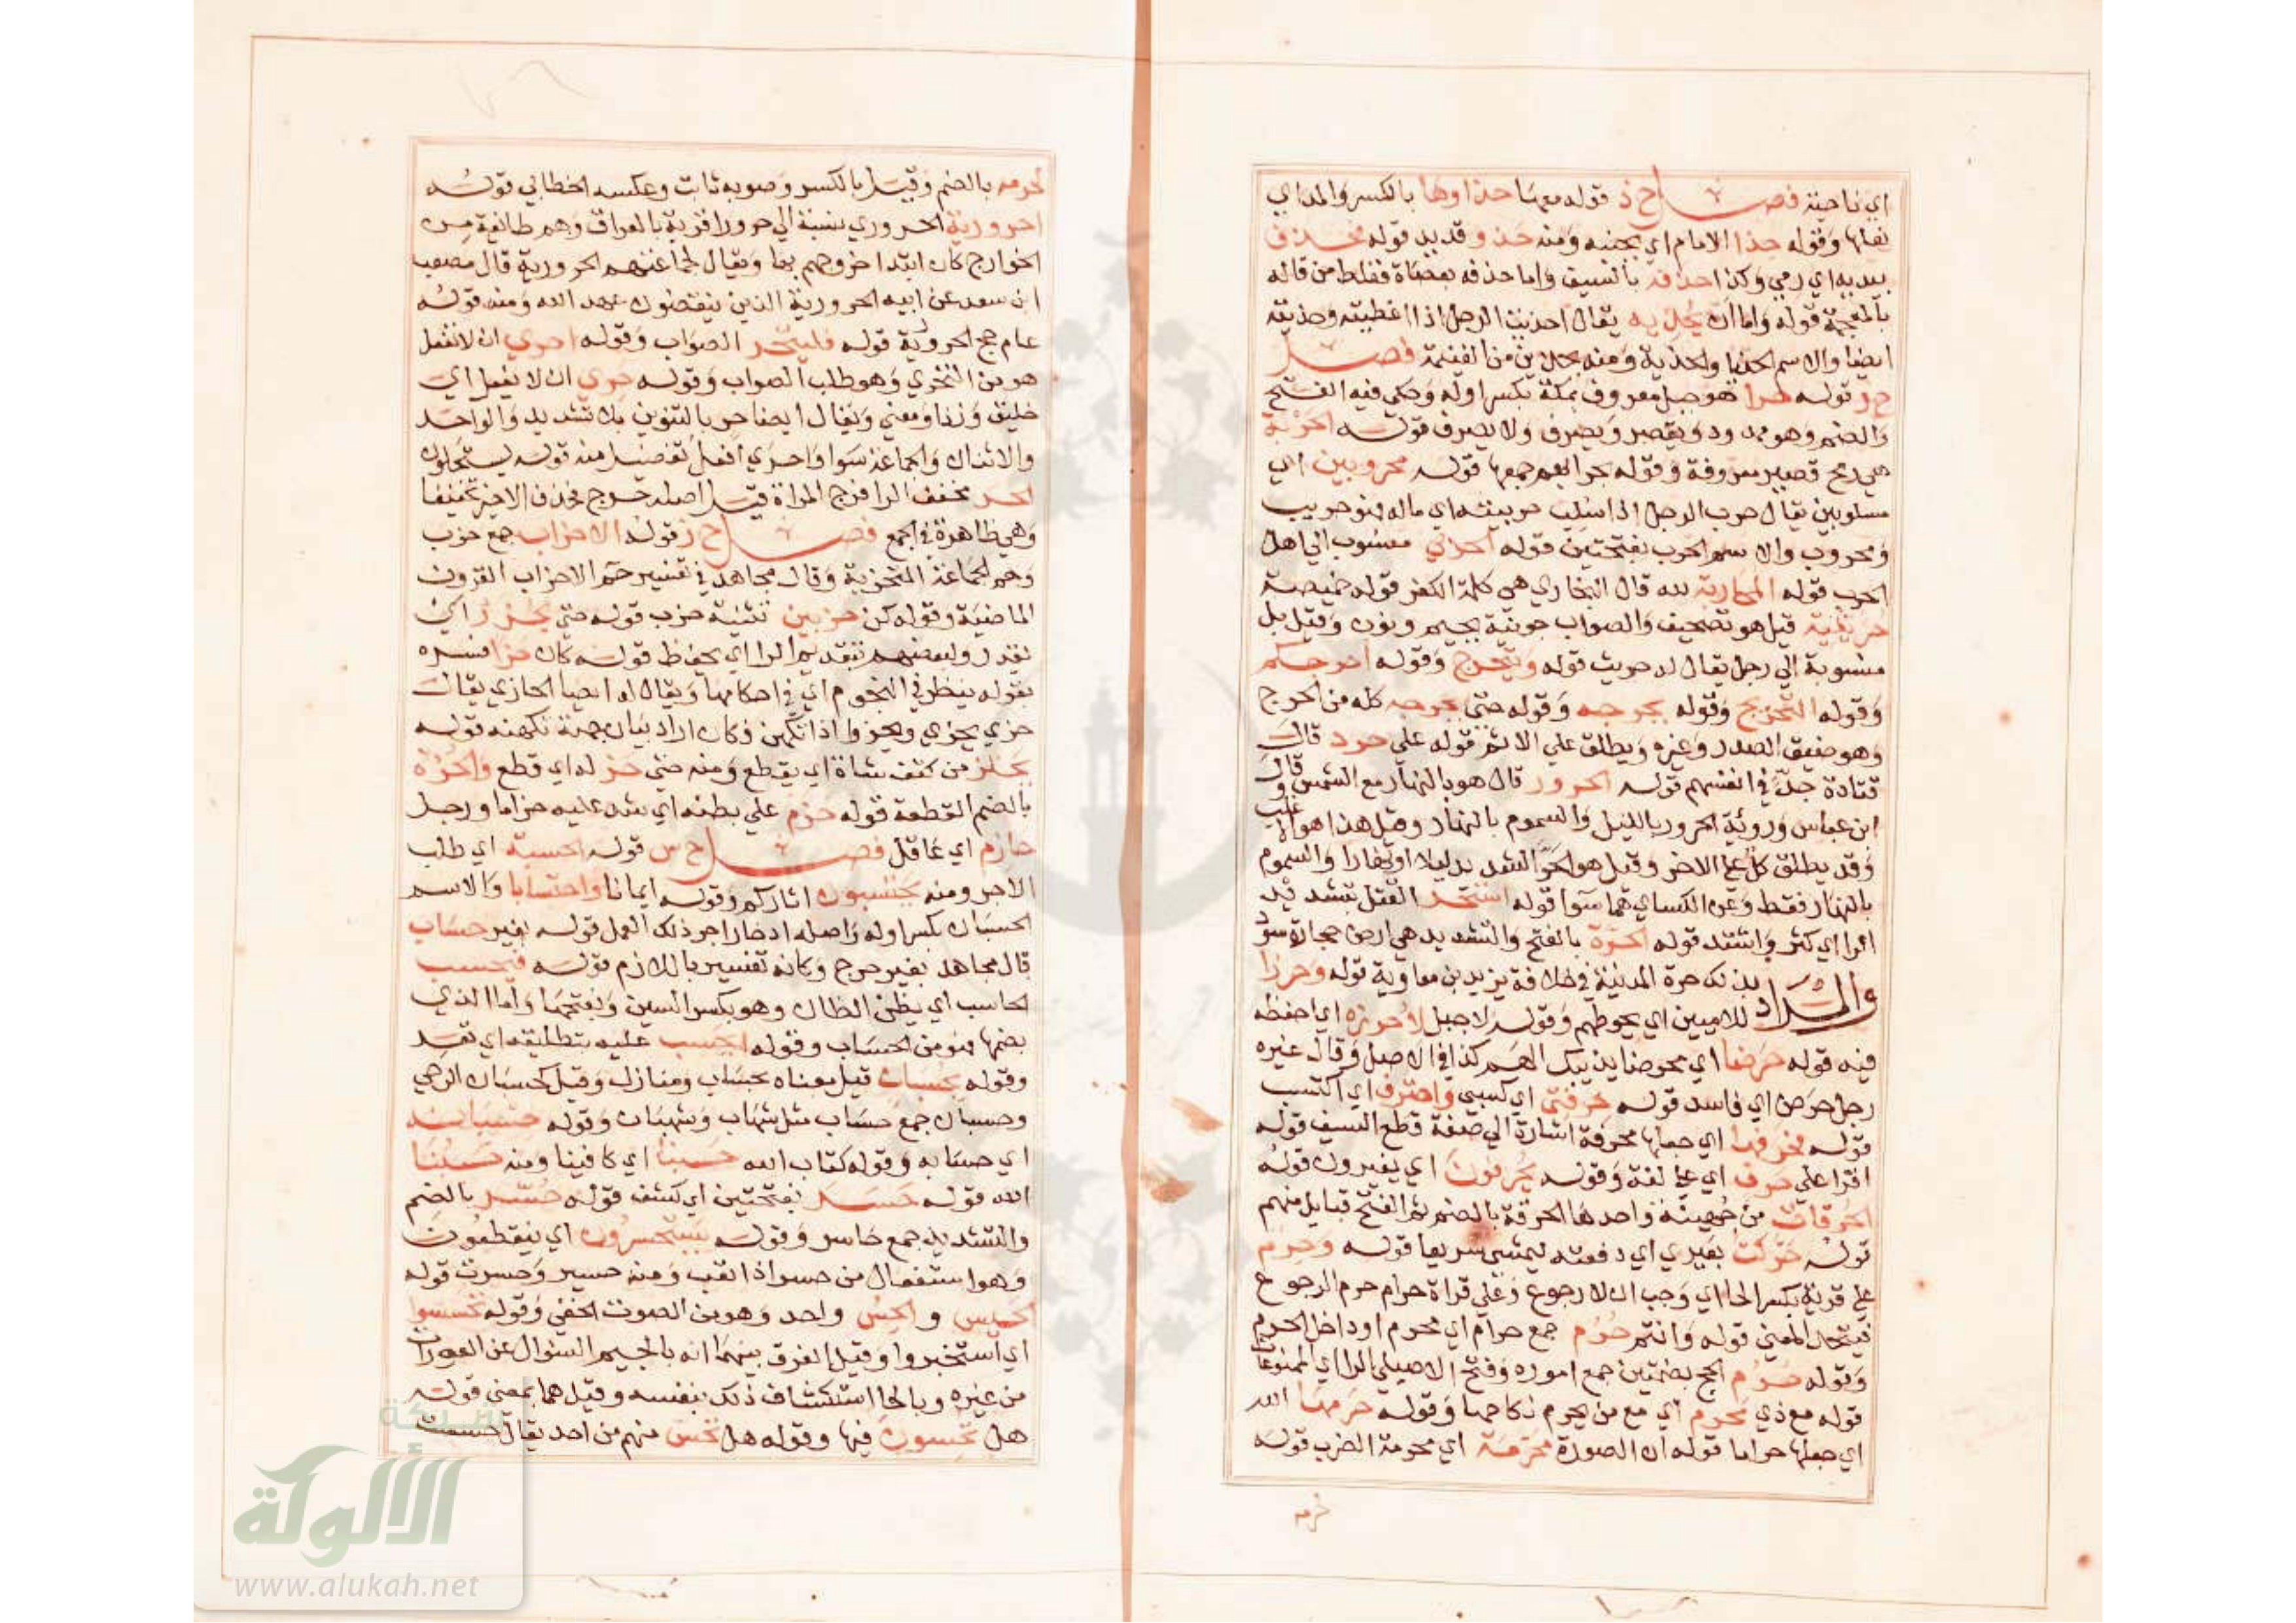 اي ناحية فصل ح ذ قوله معها حذاوها بالكسر والمد اي
نعلها وقوله حذا الامام اي بجنبه ومنه حذو قديد قوله فحذف
بيديه اي رمي وكذا حذفة بالسيف واما حذفه بعصاة فغلط من قاله
بالمعجمة قوله واما ان يحذيه يقال احذيت الرجل اذا اعطيته وحذيته
ايضا والاسم الحذيا والحذية ومنه يحذين من الغنيمة فصل
ح ر قوله حرا هو جبل معروف بمكة بكسر اوله وحكي فيه الفتح
والضم وهو ممدود ويقصر ويصرف ولا يصرف قوله الحربة
هي رمح قصير معروفة وقوله حرابهم جمعها قوله محروبين اي
مسلوبين يقال حرب الرجل اذا سلب حريبته اي ماله فهو حريب
ومحروب والاسم الحرب بفتحتين قوله الحربي منسوب الي اهل
الحرب قوله المحاربة لله قال البخاري هي كلمة الكفر قوله خميصة
حريثية قيل هو تصحيف والصواب جونية بجيم ونون وقيل بل
منسوبة الي رجل يقال له حريث قوله ويتحرج وقوله احرجكم
وقوله التحريج وقوله يحرجه وقوله حتي يحرجه كله من الحرج
وهو ضيق الصدر وغيره ويطلق علي الاثم قوله علي حرد قال
قتادة جد في انفسهم قوله الحرور قال هو بالنهار مع الشمس وقال
ابن عباس ورؤبة الحرور بالليل والسموم بالنهار وقيل هذا هو الاغلب
وقد يطلق كل علي الاخر وقيل هو الحر الشديد ليلا او نهارا والسموم
بالنهار فقط وعن الكساي هما سوا قوله استحر القتل بتشديد
الرا اي كثر واشتد قوله الحرة بالفتح والتشديد هي ارض حجارة سود
والمراد بذلك حرة المدينة في خلافة يزيد بن معاوية قوله وحرزا
للاميين اي يحوطهم وقوله لاجبل لاحرزه اي احفظه
فيه قوله حرضا اي محرضا يذيبك الهم كذا في الاصل وقال غيره
رجل حرض اي فاسد قوله حرفتي اي كسبي واحترف اي اكتسب
قوله فحرفها اي جعلها محرفة اشارة الي صفة قطع السيف قوله
اقرا علي حرف اي علي لغة وقوله يحرفون اي يغيرون قوله
الحرقات من جهينة واحدها الحرقة بالضم ثم الفتح قبايل منهم
قوله حركت بعيري اي دفعته ليمشي سريعا قوله وحرم
علي قرية بكسر الحا اي وجب ان لا رجوع وعلي قراة حرام حرم الرجوع
فيتحد المعني قوله وانتم حرم جمع حرام اي محرم او داخل الحرم
وقوله حرم الحج بضمتين جمع اموره وفتح الاصيلي الرا اي الممنوعات
قوله مع ذي محرم اي مع من يحرم نكاحها وقوله حرمها الله
اي جعلها حراما قوله ان الصورة محرمة اي محرمة الضرب قوله
لحرمه
لحرمه بالضم وقيل بالكسر وصوبه ثابت وعكسه الخطابي قوله
احرورية الحروري نسبة الي حرورا قرية بالعراق وهم طائفة من
الخوارج كان ابتدا خروجهم بها ويقال لجماعتهم الحرورية قال مصعب
ابن سعد عن ابيه الحرورية الذين ينقضون عهد الله ومنه قوله
عام حج الحرورية قوله فليتحر الصواب وقوله احري ان لا نفعل
هو من التحري وهو طلب الصواب وقوله حري ان لا يفعل اي
خليق وزنا ومعني ويقال ايضا حر بالتنوين بلا تشديد والواحد
والاثنان والجماعة سوا واحري افعل تفضيل منه قوله يستحلون
الحر مخفف الرا فرج المراة قيل اصله حرح فحذف الاخير تخفيفا
وهي ظاهرة في الجمع فصل ح ز قوله الاحزاب جمع حزب
وهم الجماعة المتحزبة وقال مجاهد في تفسير حم الاحزاب القرون
الماضية وقوله كن حزبين تثنية حزب قوله حتي يحزر اي
يقدر ولبعضهم بتقديم الرا اي يحفظ قوله كان حزا فسره
بقوله ينظر في النجوم اي في احكامها ويقال له ايضا الحازي يقال
حزي يحزي ويحزوا اذا تكهن فكان اراد بيان جهة تكهنه قوله
يحتز من كتف شاة اي يقطع ومنه حتي حز له اي قطع والحزة
بالضم القطعة قوله حزم علي بطنه اي شد عليه حزاما ورجل
حازم اي عاقل فصل ح س قوله الحسبة اي طلب
الاجر ومنه يحتسبون اثاركم وقوله ايمانا واحتسابا والاسم
الحسبان بكسر اوله واصله ادخار اجر ذلك العمل قوله بغير حساب
قال مجاهد بغير حرج وكانه تفسير باللازم قوله فيحسب
الحاسب اي يظن الظان وهو بكسر السين وبفتحها واما الذي
بضمها فهو من الحساب وقوله احسب عليه بتطليقه اي تعد
وقوله بحسبان قيل معناه بحساب ومنازل وقيل كحسبان الرحي
وحسبان جمع حساب مثل شهاب وشهبان وقوله حسبانه
اي حسابه وقوله كتاب الله حسبنا اي كافينا ومنه حسبنا
الله قوله حسر بفتحتين اي كشف قوله حسر بالضم
والتشديد جمع حاسر وقوله يستحسرون اي ينقطعون
وهو استفعال من حسر اذا تعب ومنه حسير وحسرت قوله
الحسيس والحس واحد وهو من الصوت الخفي وقوله تحسسوا
اي استخبروا وقيل الفرق بينهما انه بالجيم السؤال عن العورات
من غيره وبالحا استكشاف ذلك بنفسه وقيل هما بمعني قوله
هل تحسون فيها وقوله هل تحس منهم من احد يقال حسست
شبكة
الألوكة
www.alukah.net